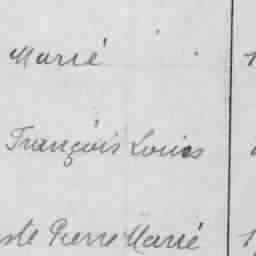 Marié
François Louis
Pierre Marié